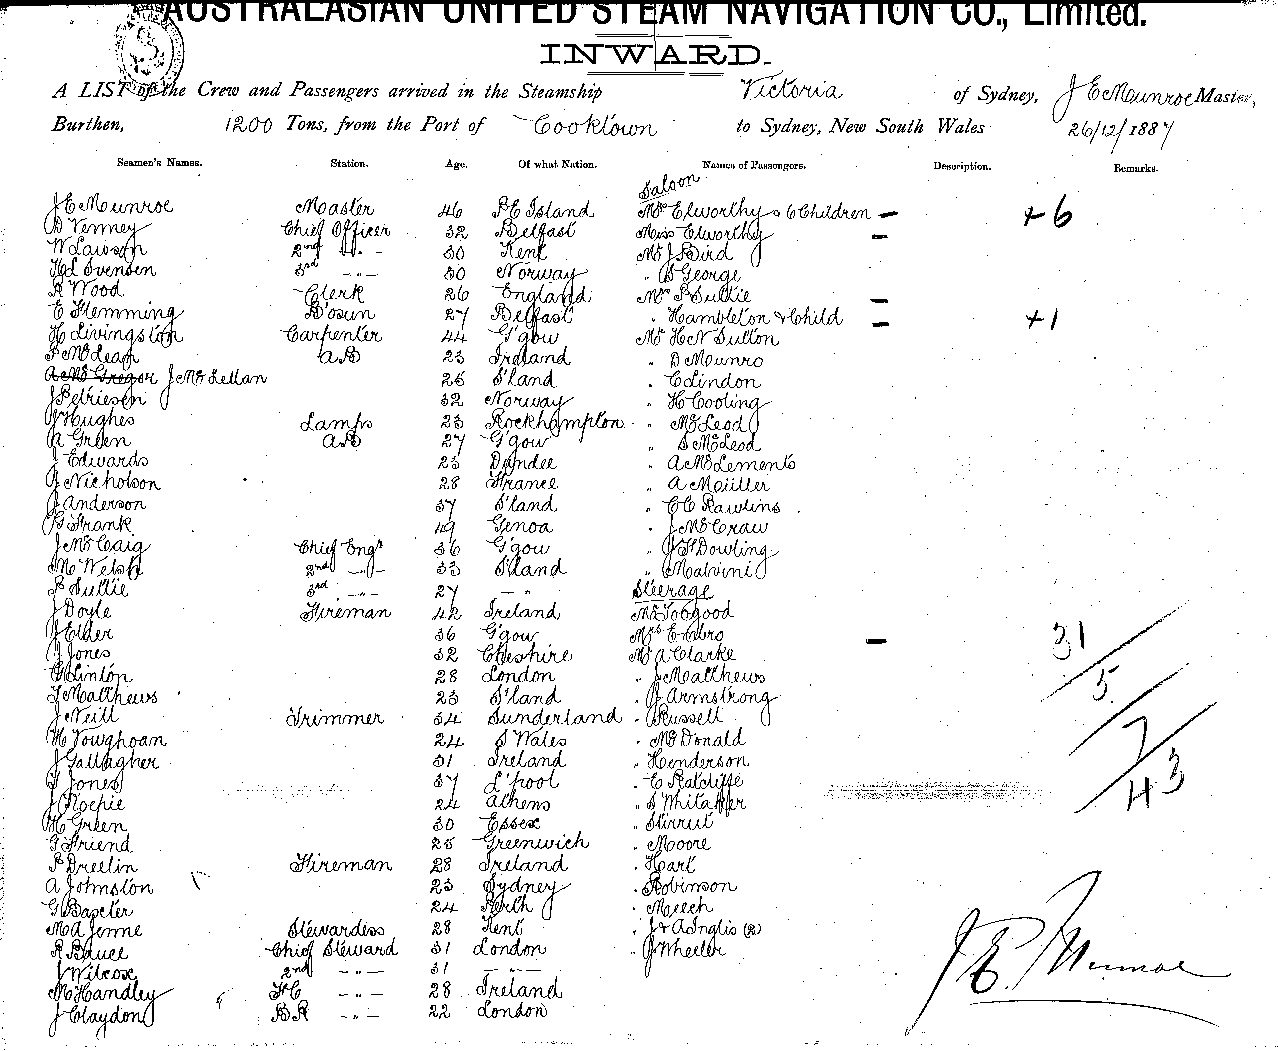 AUSTRALASIAN UNITED STEAM NAVIGATION CO., Limited.
INWARD.
A LIST of the Crew and Passengers arrived in the Steamship Victoria of Sydney, J E Munroe Master,
Burthen, 1200 Tons, from the Port of Cooktown to Sydney, New South Wales 26/12/1887
Seamen's Names. Station. Age. Of what Nation. Names of Passengers. Description. Remarks.
Saloon
J E Munroe Master 46 P E Island Mrs Elworthy & 6 Children – +6
D Venney Chief Officer 32 Belfast Miss Elworthy –
W Lawson 2nd 30 Kent Mr J Bird
H L Svensen 3rd -"- 30 Norway " G George
R Wood Clerk 26 England Mrs P Suttie –
E Flemming B'osun 27 Belfast " Hambleton & Child – +1
H Livingston Carpenter 44 G'gow Mr H N Sutton
P McLean AB 23 Ireland " D Munro
A McGregor J McLellan 26 S'land " C Lindon
J Petriesen 32 Norway " H Cooling
J Hughes Lamps 23 Rockhampton " McLeod
A Green AB 27 G'gow " S McLeod
J Edwards 23 Dundee " A McLements
J Nicholson 28 France " A Müller
J Anderson 37 S'land " C C Rawlins
G Frank 49 Genoa " J McCraw
J McCaig Chief Engr 36 G'gow " J F Dowling
M Welsh 2nd -"- 33 S'land " Malvini
P Suttie 3rd -"- 27 -"- Steerage
J Doyle Fireman 42 Ireland Mr Toogood
J Elder 36 G'gow Mrs Embro – 31
J Jones 32 Cheshire Mr A Clarke
C Linton 28 London " J Matthews 5
T Matthews 23 S'land " J Armstrong
J Neill Trimmer 34 Sunderland " Russell 7
H Voughoan 24 S Wales " McDonald
J Gallagher 31 Ireland " Henderson
T Jones 37 L'pool " E Ratcliffe 43
J Roepie 24 Athens " S Whitaker
H Green 30 Essex " Stirrut
G Friend 25 Greenwich " Moore
P Dreelin Fireman 28 Ireland " Hart
A Johnston 23 Sydney " Robinson
G Baxter 24 Perth " Meech
M A Jenne Stewardess 28 Kent " J & A Inglis (2)
R Bruce Chief Steward 31 London " J Wheeler
J Wilcox 2nd -"- 31 -"-
M Handley FC -"- 28 Ireland
J Claydon BR -"- 22 London
J E Munroe